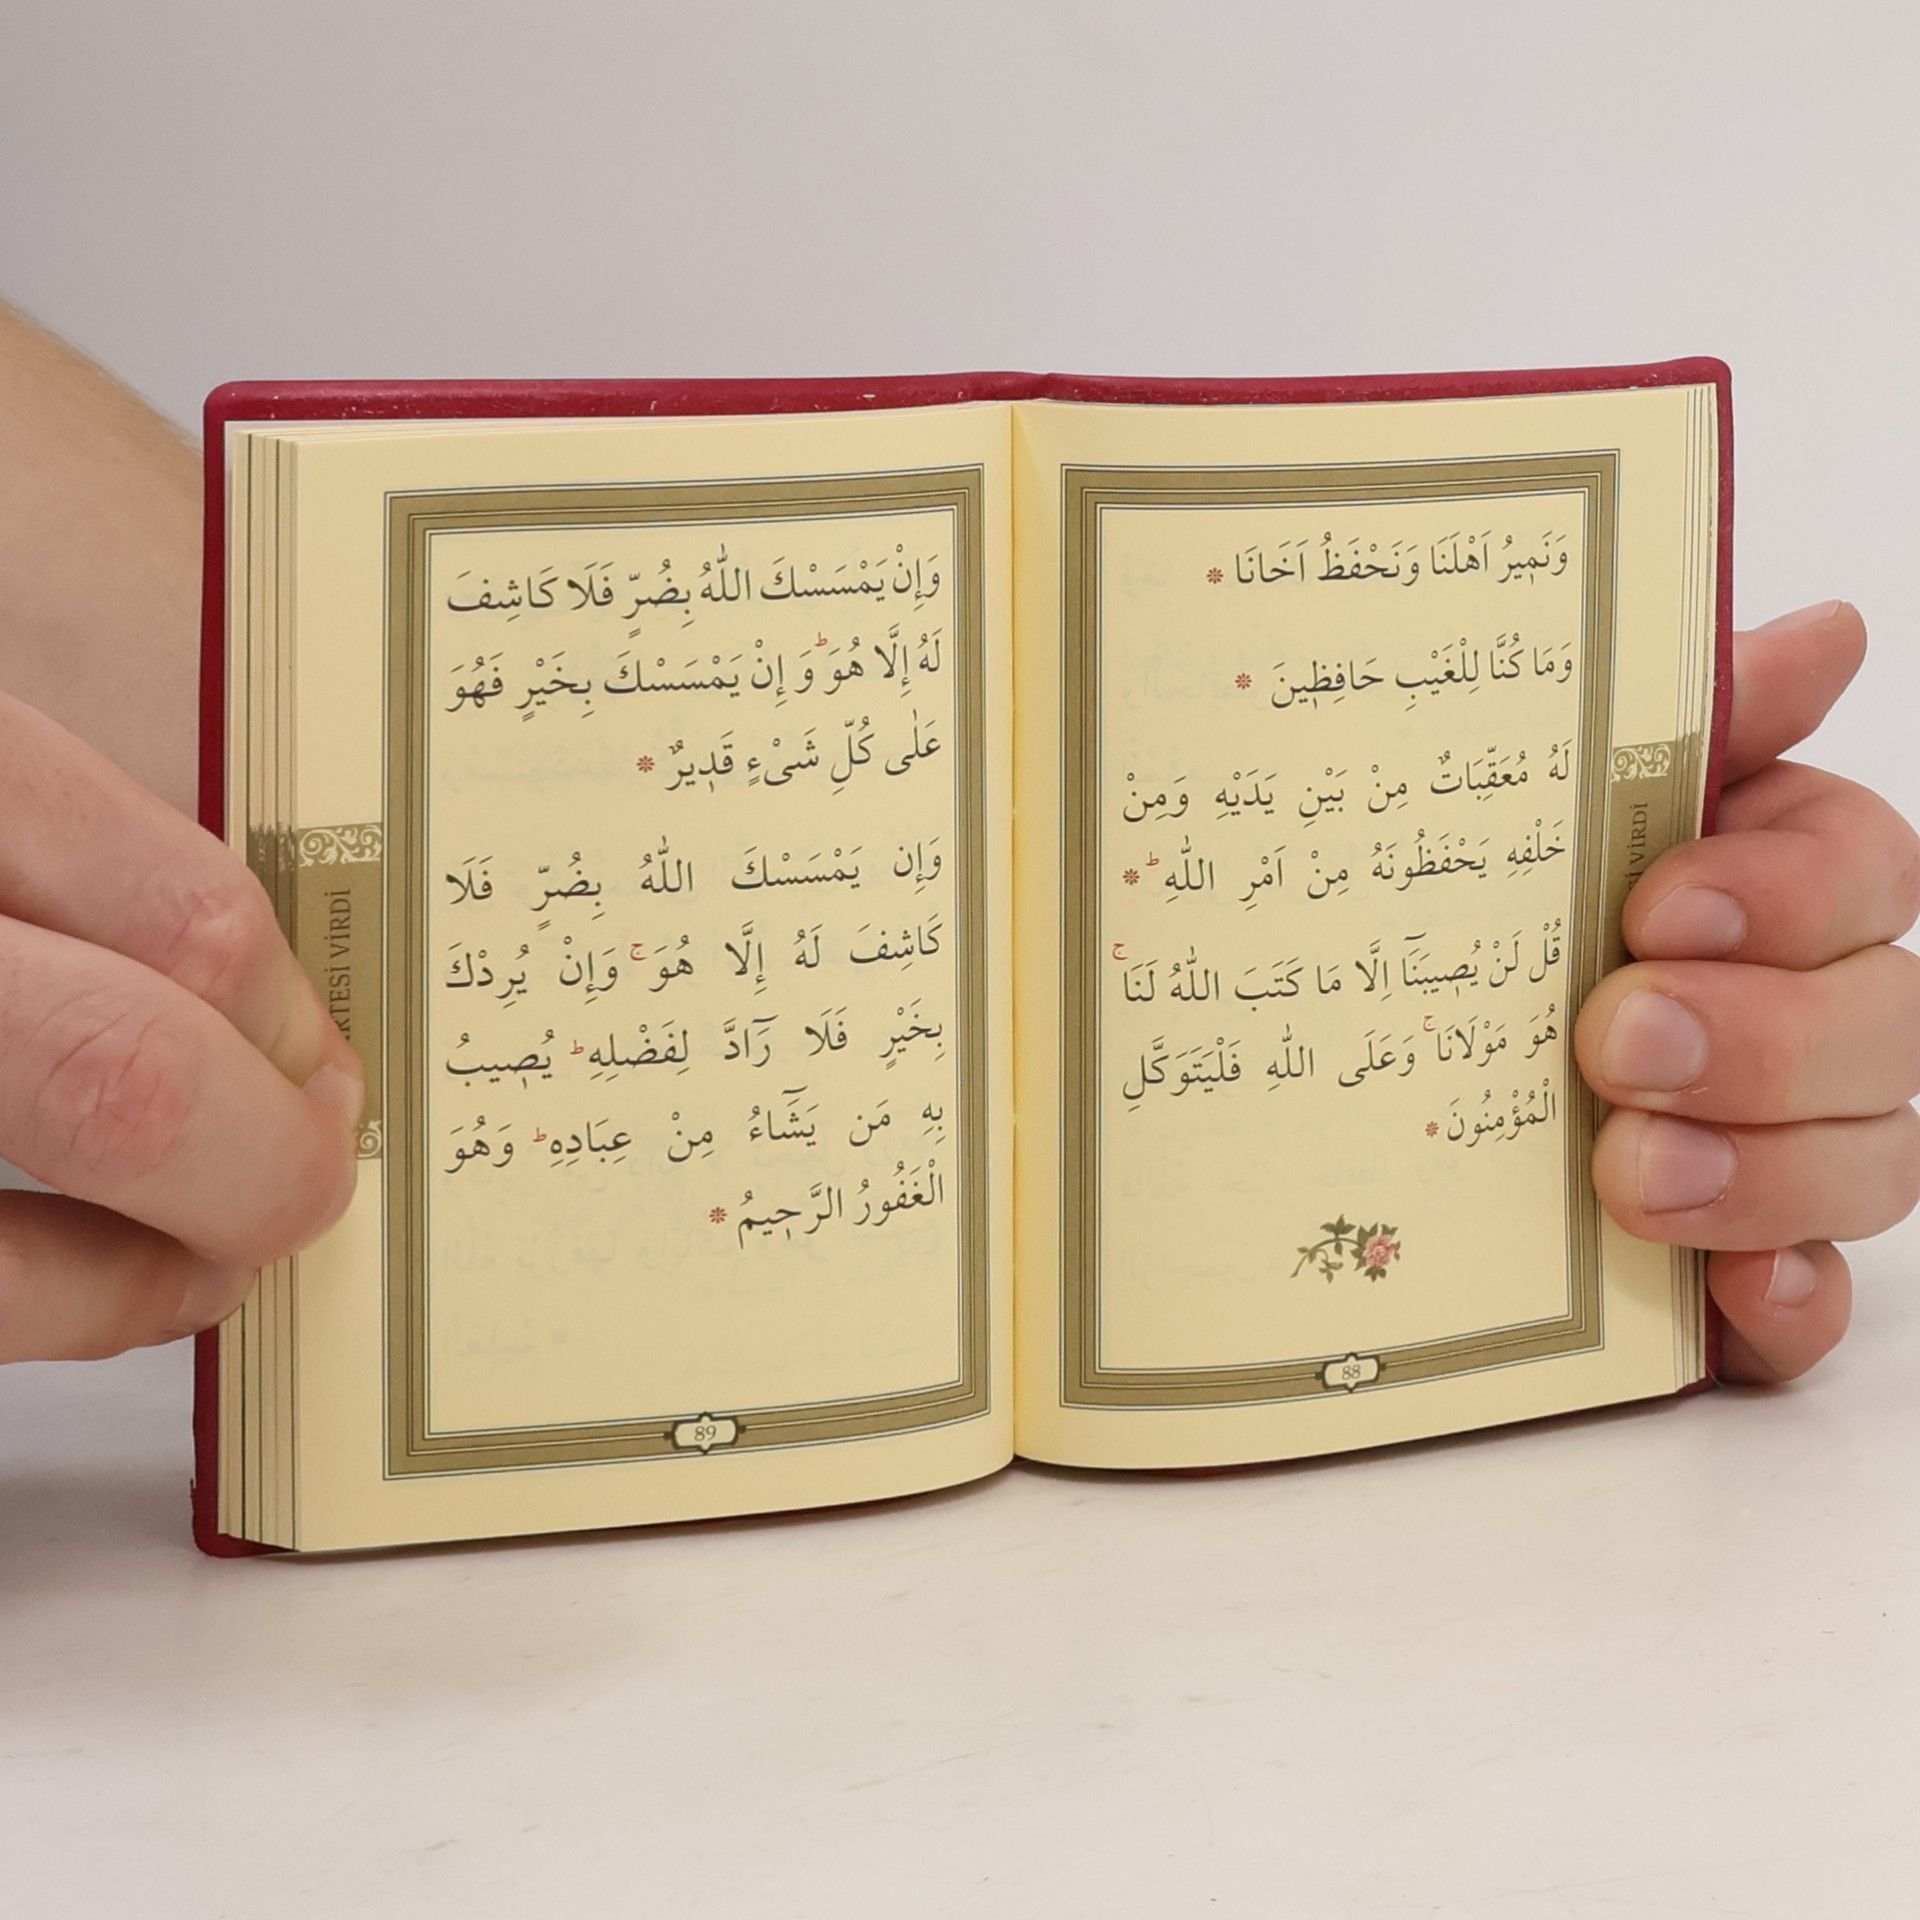 وَنَمٖيرُ اَهْلَنَا وَنَحْفَظُ اَخَانَا ❊
وَمَا كُنَّا لِلْغَيْبِ حَافِظٖينَ ❊
لَهُ مُعَقِّبَاتٌ مِنْ بَيْنِ يَدَيْهِ وَمِنْ
خَلْفِهِ يَحْفَظُونَهُ مِنْ اَمْرِ اللّٰهِ ؕ ❊
قُلْ لَنْ يُصٖيبَنَٓا اِلَّا مَا كَتَبَ اللّٰهُ لَنَا ۚ
هُوَ مَوْلَانَا ۚ وَعَلَى اللّٰهِ فَلْيَتَوَكَّلِ
الْمُؤْمِنُونَ ❊
88
VİRDİ
وَإِنْ يَمْسَسْكَ اللّٰهُ بِضُرٍّ فَلَا كَاشِفَ
لَهُ إِلَّا هُوَ ؕ وَ إِنْ يَمْسَسْكَ بِخَيْرٍ فَهُوَ
عَلٰى كُلِّ شَیْءٍ قَدٖيرٌ ❊
وَإِن يَمْسَسْكَ اللّٰهُ بِضُرٍّ فَلَا
كَاشِفَ لَهُ إِلَّا هُوَ ۚ وَإِنْ يُرِدْكَ
بِخَيْرٍ فَلَا رَٓادَّ لِفَضْلِهِ ؕ يُصٖيبُ
بِهِ مَن يَشَٓاءُ مِنْ عِبَادِهِ ؕ وَهُوَ
الْغَفُورُ الرَّحٖيمُ ❊
89
RTESİ VİRDİ